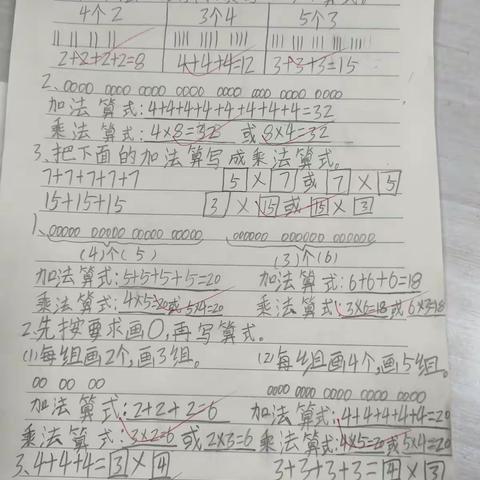 4个2 3个4 5个3
2+2+2+2=8 4+4+4=12 3+3+3=15
2、
加法算式:4+4+4+4+4+4+4+4=32
乘法算式:4×8=32 或8×4=32
3、把下面的加法算写成乘法算式。
7+7+7+7+7 5×7或7×5
15+15+15 3×15或15×3
1、
(4)个(5) (3)个(6)
加法算式:5+5+5+5=20 加法算式:6+6+6=18
乘法算式:4×5=20或5×4=20 乘法算式:3×6=18或6×3=18
2、先按要求画O,再写算式。
(1)每组画2个,画3组。 (2)每组画4个,画5组。
加法算式:2+2+2=6 加法算式:4+4+4+4+4=20
乘法算式:3×2=6或2×3=6 乘法算式:4×5=20或5×4=20
3、4+4+4=3×4 3+3+3+3=4×3